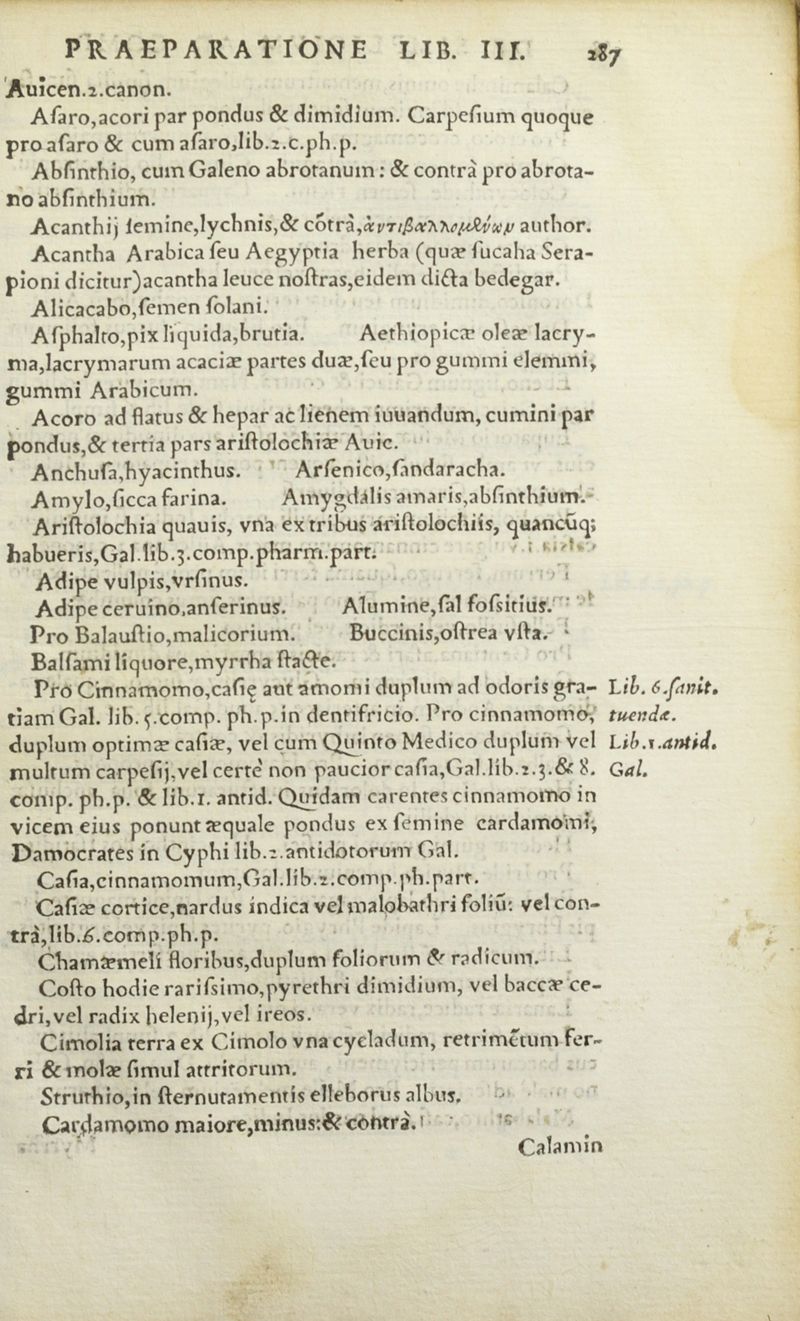 PRAEPARATIONE LIB. III. 287
Auicen.2.canon.
Aſaro,acori par pondus & dimidium. Carpeſium quoque
pro aſaro & cum aſaro,lib.2.c.ph.p.
Abſinthio, cum Galeno abrotanum : & contrà pro abrota-
no abſinthium.
Acanthij ſemine,lychnis,& cõtrà,ἀντιβαλλομένων author.
Acantha Arabica ſeu Aegyptia herba (quæ ſucaha Sera-
pioni dicitur)acantha leuce noſtras,eidem dicta bedegar.
Alicacabo,ſemen ſolani.
Aſphalto,pix liquida,brutia. Aethiopicæ oleæ lacry-
ma,lacrymarum acaciæ partes duæ,ſeu pro gummi elemmi,
gummi Arabicum.
Acoro ad flatus & hepar ac lienem iuuandum, cumini par
pondus,& tertia pars ariſtolochiæ Auic.
Anchuſa,hyacinthus. Arſenico,ſandaracha.
Amylo,ſicca farina. Amygdalis amaris,abſinthium.
Ariſtolochia quauis, vna ex tribus ariſtolochiis, quancũq;
habueris,Gal.lib.3.comp.pharm.part.
Adipe vulpis,vrſinus.
Adipe ceruino,anſerinus. Alumine,ſal foſsitius.
Pro Balauſtio,malicorium. Buccinis,oſtrea vſta.
Balſami liquore,myrrha ſtacte.
Pro Cinnamomo,caſię aut amomi duplum ad odoris gra- Lib. 6.ſanit.
tiam Gal. lib. 5.comp. ph.p.in dentifricio. Pro cinnamomo, tuendæ.
duplum optimæ caſiæ, vel cum Quinto Medico duplum vel Lib.1.antid.
multum carpeſij,vel certè non paucior caſia,Gal.lib.2.3.& 8. Gal.
comp. ph.p. & lib.1. antid. Quidam carentes cinnamomo in
vicem eius ponunt æquale pondus ex ſemine cardamomi,
Damocrates in Cyphi lib.2.antidotorum Gal.
Caſia,cinnamomum,Gal.lib.2.comp.ph.part.
Caſiæ cortice,nardus indica vel malobathri foliũ: vel con-
trà,lib.6.comp.ph.p.
Chamæmeli floribus,duplum foliorum & radicum.
Coſto hodie rariſsimo,pyrethri dimidium, vel baccæ ce-
dri,vel radix helenij,vel ireos.
Cimolia terra ex Cimolo vna cycladum, retrimẽtum fer-
ri & molæ ſimul attritorum.
Struthio,in ſternutamentis elleborus albus.
Cardamomo maiore,minus:& contrà.
Calamin